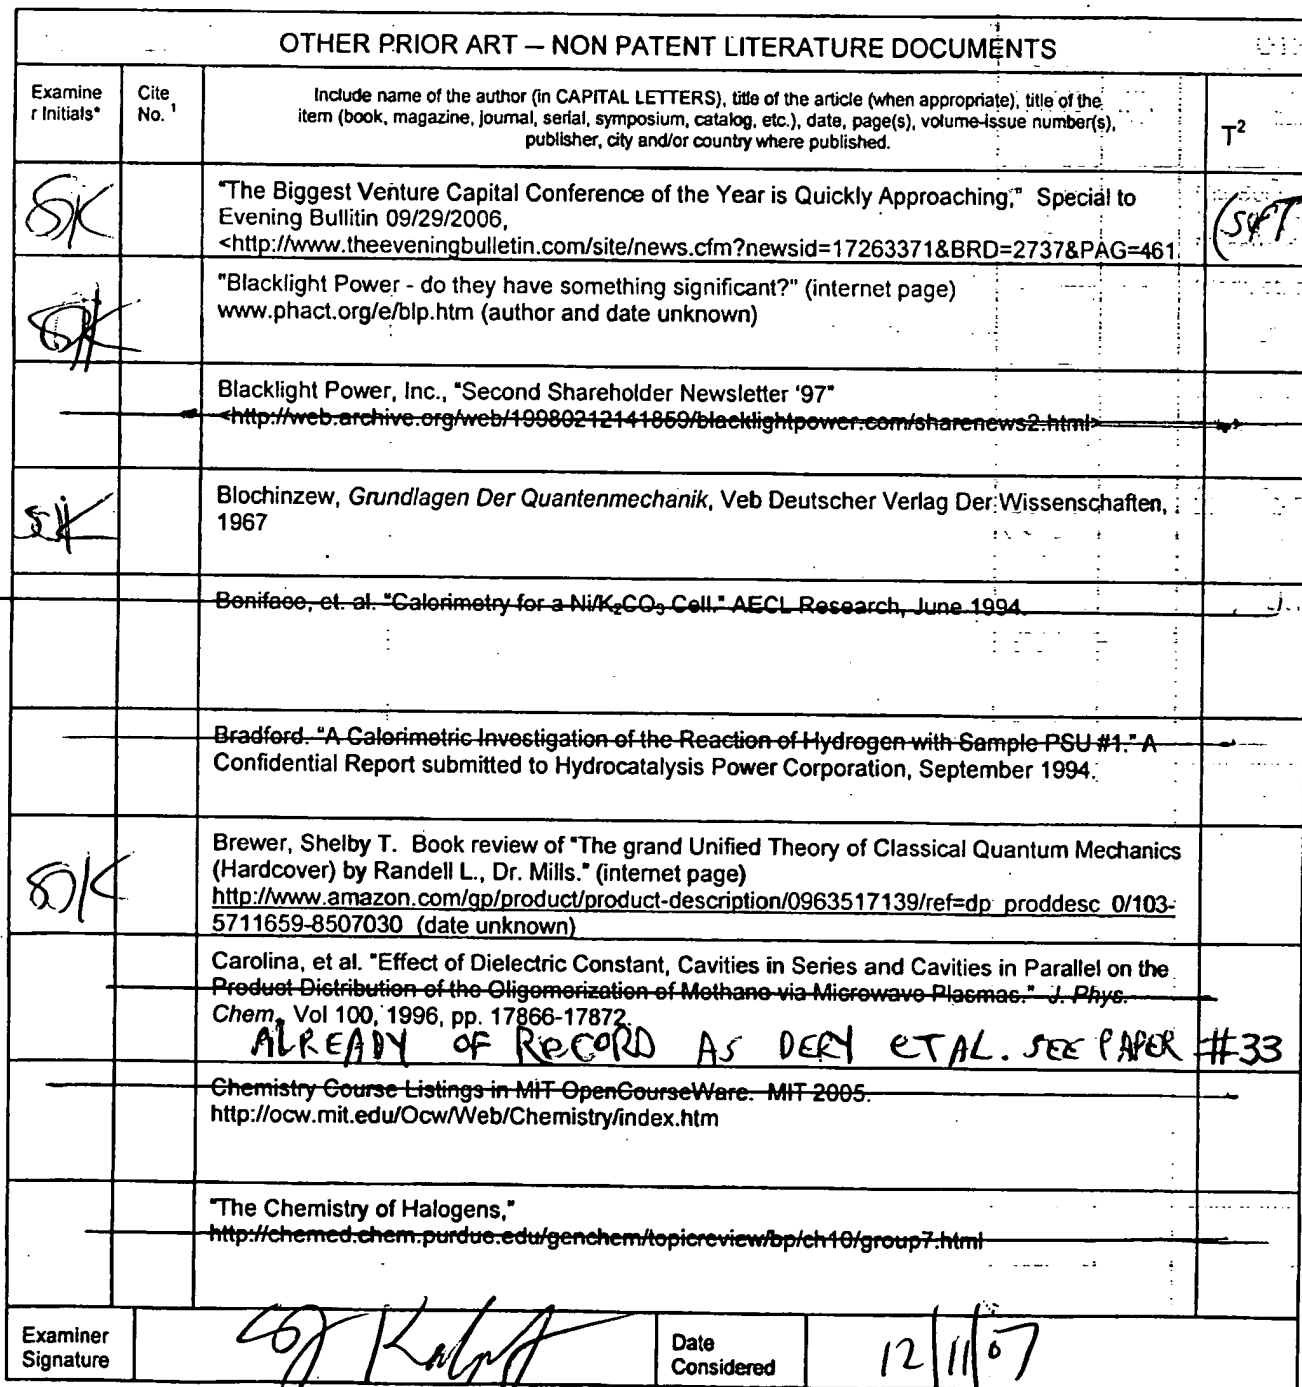 OTHER PRIOR ART – NON PATENT LITERATURE DOCUMENTS
Examine
r Initials*
Cite
No. 1
Include name of the author (in CAPITAL LETTERS), title of the article (when appropriate), title of the
item (book, magazine, journal, serial, symposium, catalog, etc.), date, page(s), volume-issue number(s),
publisher, city and/or country where published.
T2
SK
"The Biggest Venture Capital Conference of the Year is Quickly Approaching," Special to
Evening Bullitin 09/29/2006,
<http://www.theeveningbulletin.com/site/news.cfm?newsid=17263371&BRD=2737&PAG=461
SK
"Blacklight Power - do they have something significant?" (internet page)
www.phact.org/e/blp.htm (author and date unknown)
Blacklight Power, Inc., "Second Shareholder Newsletter '97"
<http://web.archive.org/web/19980212141859/blacklightpower.com/sharenews2.html>
SK
Blochinzew, Grundlagen Der Quantenmechanik, Veb Deutscher Verlag Der Wissenschaften,
1967
Boniface, et. al. "Calorimetry for a Ni/K2CO3 Cell." AECL Research, June 1994.
Bradford. "A Calorimetric Investigation of the Reaction of Hydrogen with Sample PSU #1." A
Confidential Report submitted to Hydrocatalysis Power Corporation, September 1994.
SK
Brewer, Shelby T. Book review of "The grand Unified Theory of Classical Quantum Mechanics
(Hardcover) by Randell L., Dr. Mills." (internet page)
http://www.amazon.com/gp/product/product-description/0963517139/ref=dp_proddesc_0/103-
5711659-8507030 (date unknown)
Carolina, et al. "Effect of Dielectric Constant, Cavities in Series and Cavities in Parallel on the
Product Distribution of the Oligomerization of Methane via Microwave Plasmas." J. Phys.
Chem., Vol 100, 1996, pp. 17866-17872.
ALREADY OF RECORD AS DERY ET AL. SEE PAPER #33
Chemistry Course Listings in MIT OpenCourseWare. MIT 2005.
http://ocw.mit.edu/Ocw/Web/Chemistry/index.htm
"The Chemistry of Halogens,"
http://chemed.chem.purdue.edu/genchem/topicreview/bp/ch10/group7.html
Examiner
Signature
Date
Considered
12/11/07